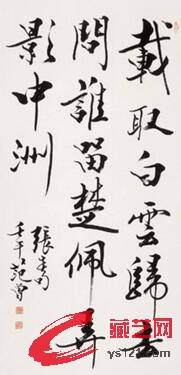 載取白雲歸去
問誰留楚佩弄
影中洲
張炎句
壬午范曾
藏艺网